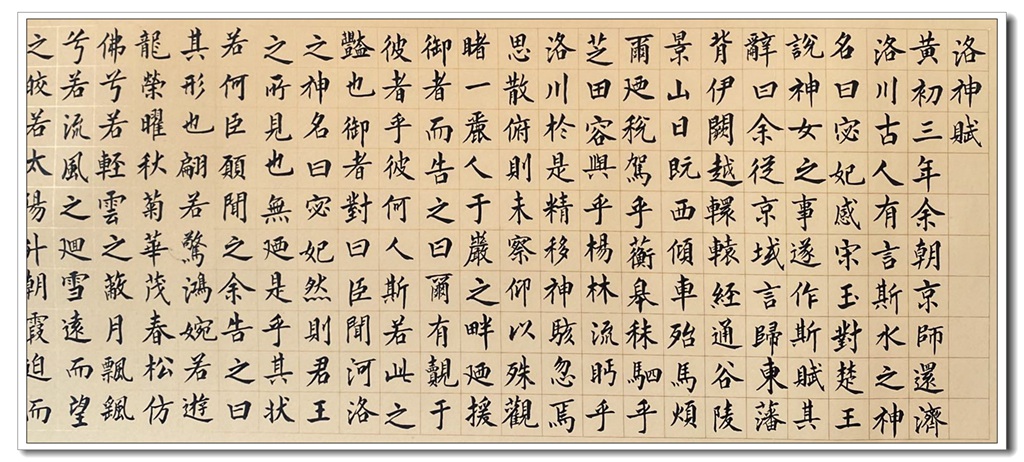 洛神賦
黃初三年余朝京師還濟
洛川古人有言斯水之神
名曰宓妃感宋玉對楚王
說神女之事遂作斯賦其
辭曰余從京域言歸東藩
背伊闕越轘轅経通谷陵
景山日既西傾車殆馬煩
爾廼稅駕乎蘅皋秣駟乎
芝田容與乎楊林流眄乎
洛川於是精移神駭忽焉
思散俯則未察仰以殊觀
睹一麗人于巖之畔廼援
御者而告之曰爾有覿于
彼者乎彼何人斯若此之
豔也御者對曰臣聞河洛
之神名曰宓妃然則君王
之所見也無廼是乎其状
若何臣願聞之余告之曰
其形也翩若驚鴻婉若遊
龍榮曜秋菊華茂春松仿
佛兮若輕雲之蔽月飄颻
兮若流風之廻雪遠而望
之皎若太陽升朝霞迫而